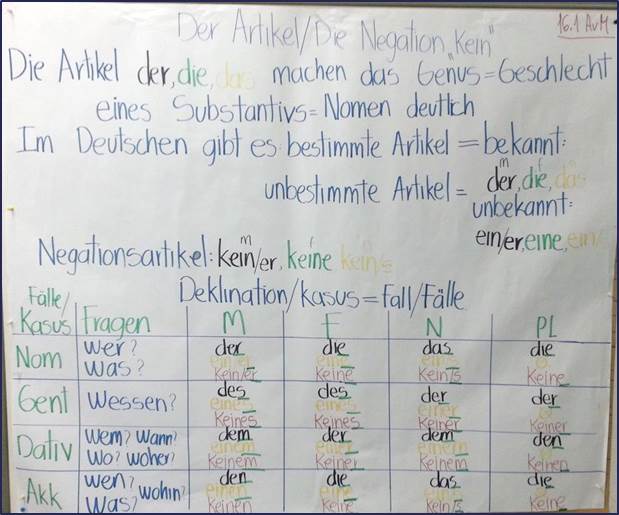 Der Artikel/Die Negation "Kein"
16.1 AvM
Die Artikel der, die, das machen das Genus=Geschlecht
eines Substantivs=Nomen deutlich
Im Deutschen gibt es bestimmte Artikel = bekannt:
m f n
der, die, das
unbestimmte Artikel = unbekannt:
ein/er, eine, ein/
m f n
Negationsartikel: kein/er, keine kein/s
Deklination/Kasus=Fall/Fälle
Fälle/
Kasus Fragen M F N PL
Nom wer? der die das die
was? ein/er eine ein/s
Kein/er Keine Kein/s Keine
Gent Wessen? des des der der
eines eines einer
Keines Keines Keiner Keiner
Dativ Wem? Wann? dem der dem den
Wo? Woher? einem einer einem
Keinem Keiner Keinem Keinen
Akk wen? wohin? den die das die
was? einen eine
Keinen Keine Kein/s Keine